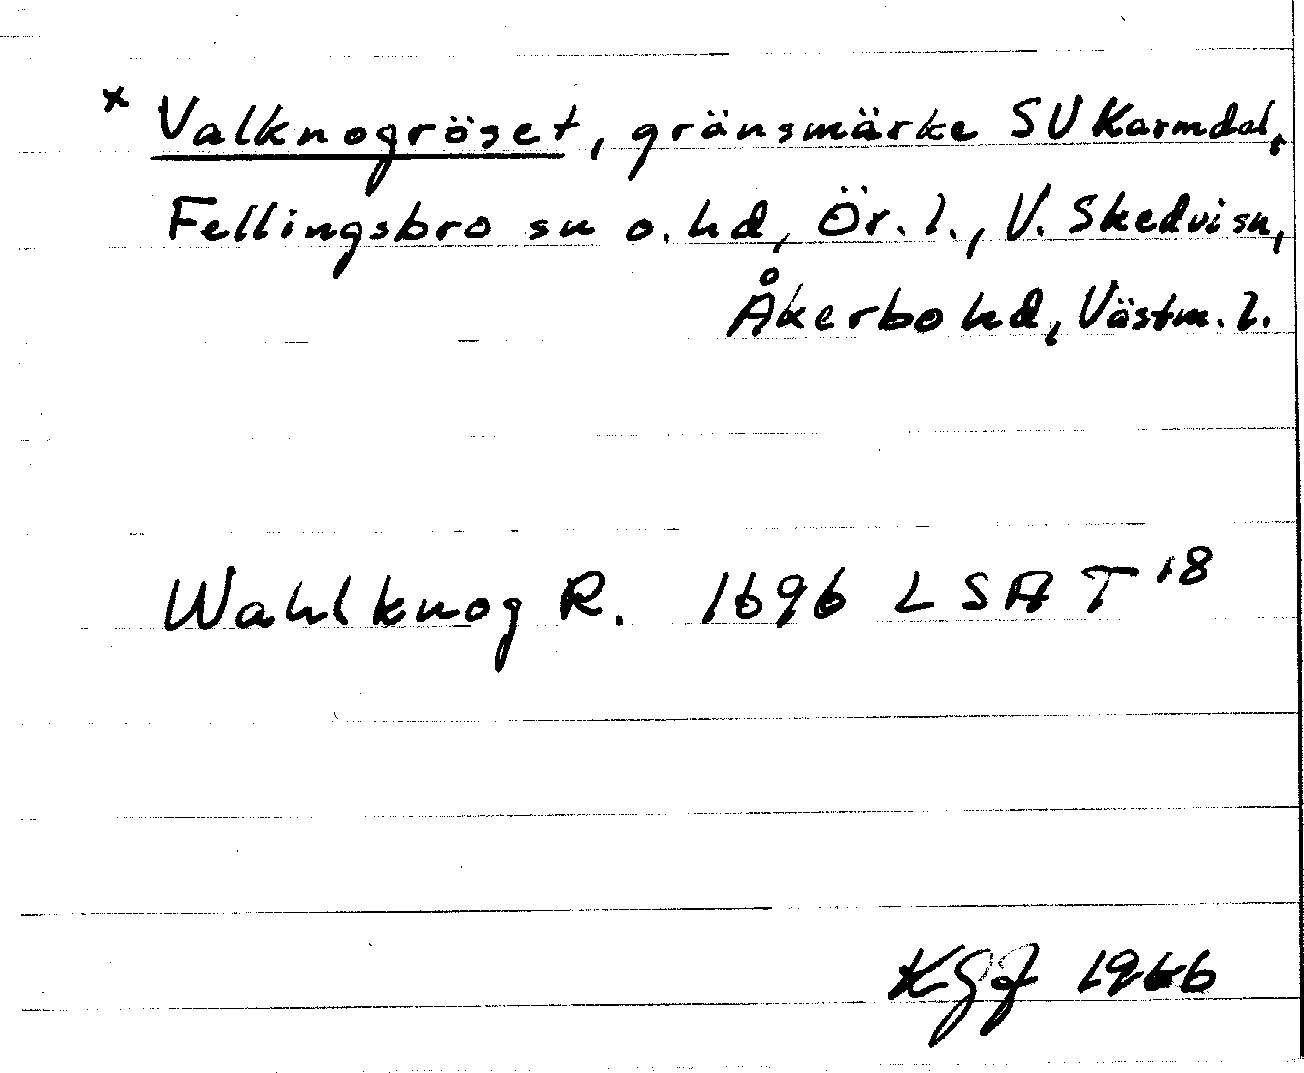 x Valknogröset, gränsmärke SV Karmdal,
Fellingsbro sn o. hd, Ör. l., V. Skedvi sn,
Åkerbo hd, Västm. l.
Wahlknog R. 1696 LSA T 18
KGJ 1966